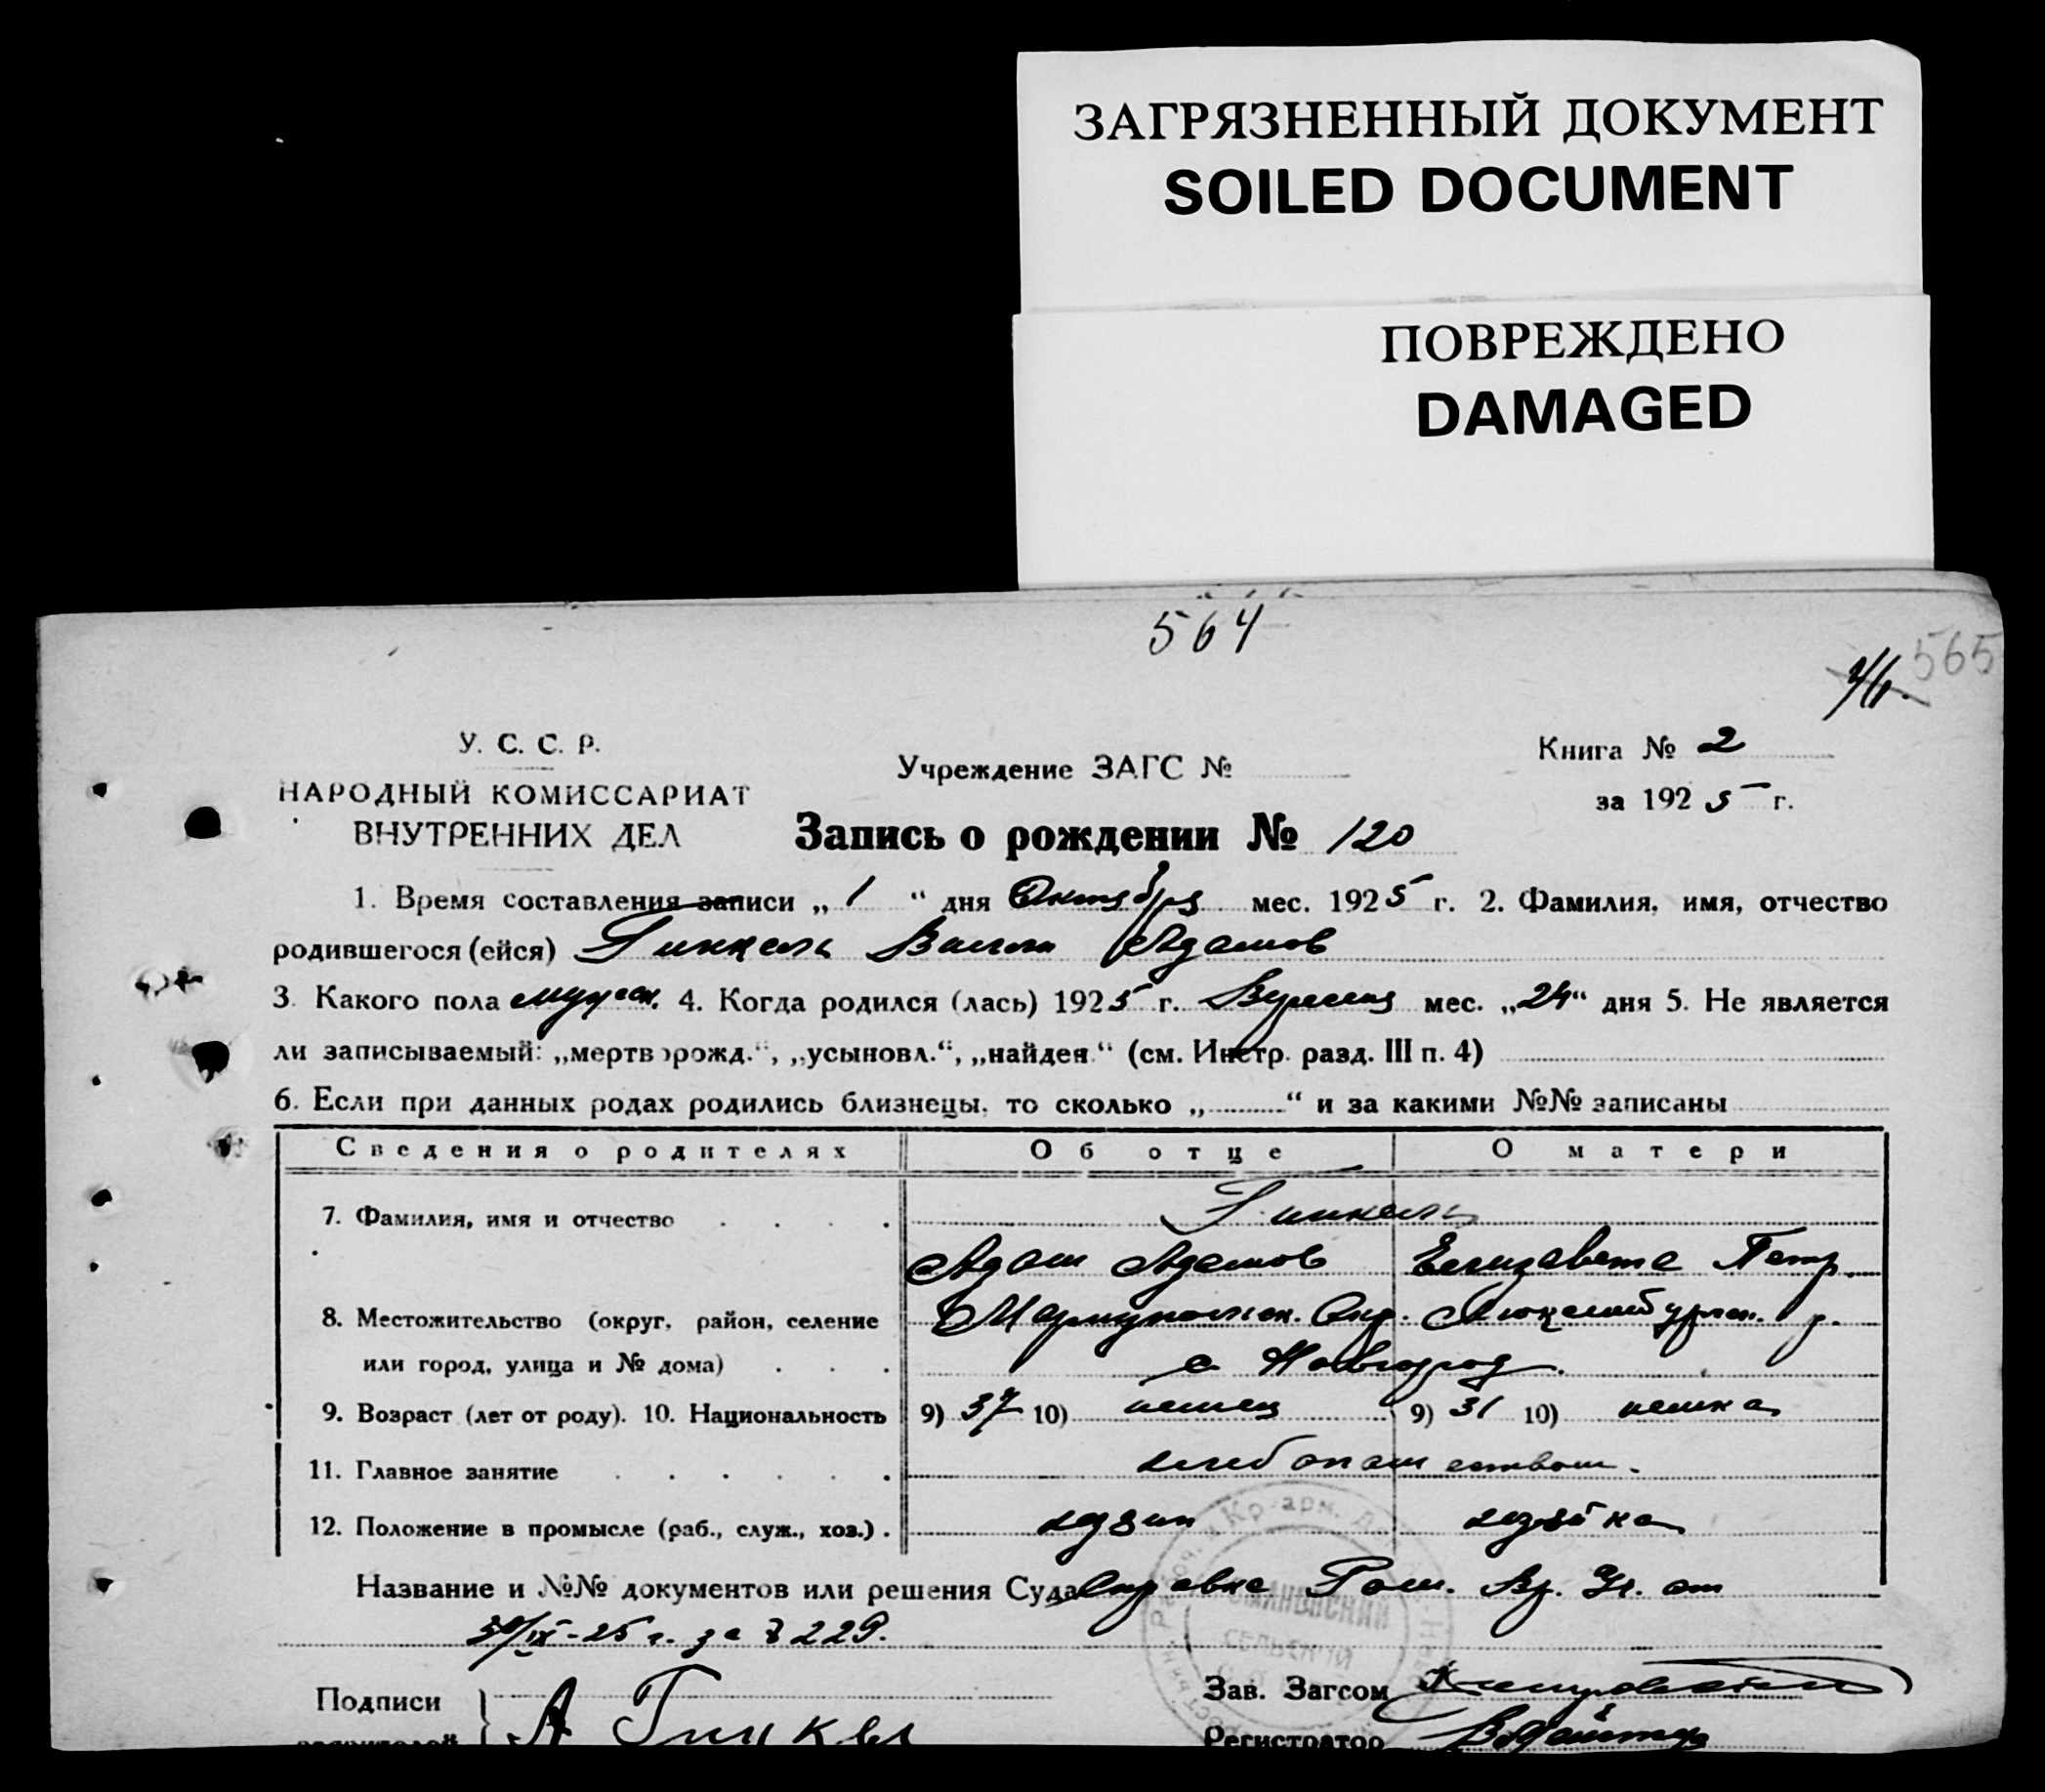 ЗАГРЯЗНЕННЫЙ ДОКУМЕНТ
SOILED DOCUMENT
ПОВРЕЖДЕНО
DAMAGED
564
565
У. С. С. Р.
НАРОДНЫЙ КОМИССАРИАТ
ВНУТРЕННИХ ДЕЛ
Учреждение ЗАГС №
Книга № 2
за 1925 г.
Запись о рождении № 120
1. Время составления записи „1“ дня Октября мес. 1925 г. 2. Фамилия, имя, отчество
родившегося (ейся) Гинкель Вилли Адамов
3. Какого пола мужск. 4. Когда родился (лась) 1925 г. Вересня мес. „24“ дня 5. Не является
ли записываемый: „мертворожд.“, „усыновл.“, „найден.“ (см. Инстр. разд. III п. 4)
6. Если при данных родах родились близнецы, то сколько „ “ и за какими №№ записаны
Сведения о родителях Об отце О матери
7. Фамилия, имя и отчество Гинкель
Адам Адамов Елизавета Петр.
8. Местожительство (округ, район, селение Мариупольск. Окр. Люксембургск. р.
или город, улица и № дома) с. Новгород.
9. Возраст (лет от роду). 10. Национальность 9) 37 10) немец 9) 31 10) немка
11. Главное занятие хлебопашеством.
12. Положение в промысле (раб., служ., хоз.) хозяин хозяйка
Название и №№ документов или решения Суда Справка от
30/IX-25 г. за № 229.
СЕЛЬСКИЙ
Подписи А Гинкел
Зав. Загсом
Регистратор